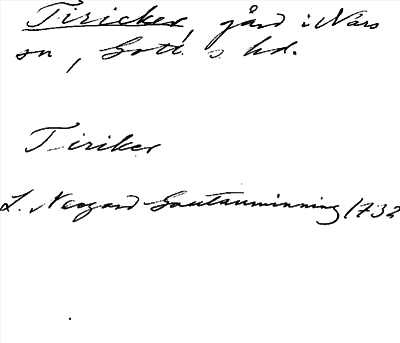 Tiricker, gård i Närs
sn, Gotl. s. hd.
Tiriker
L. Neogard Gautauminning 1732